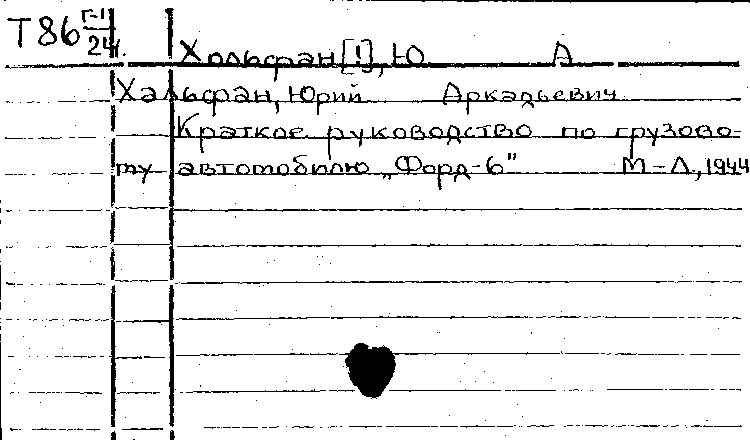 Т86 Г-1/24 Хольфан[!], Ю А
Хальфан, Юрий Аркадьевич
Краткое руководство по грузово-
му автомобилю „Форд-6" М-Л, 1944